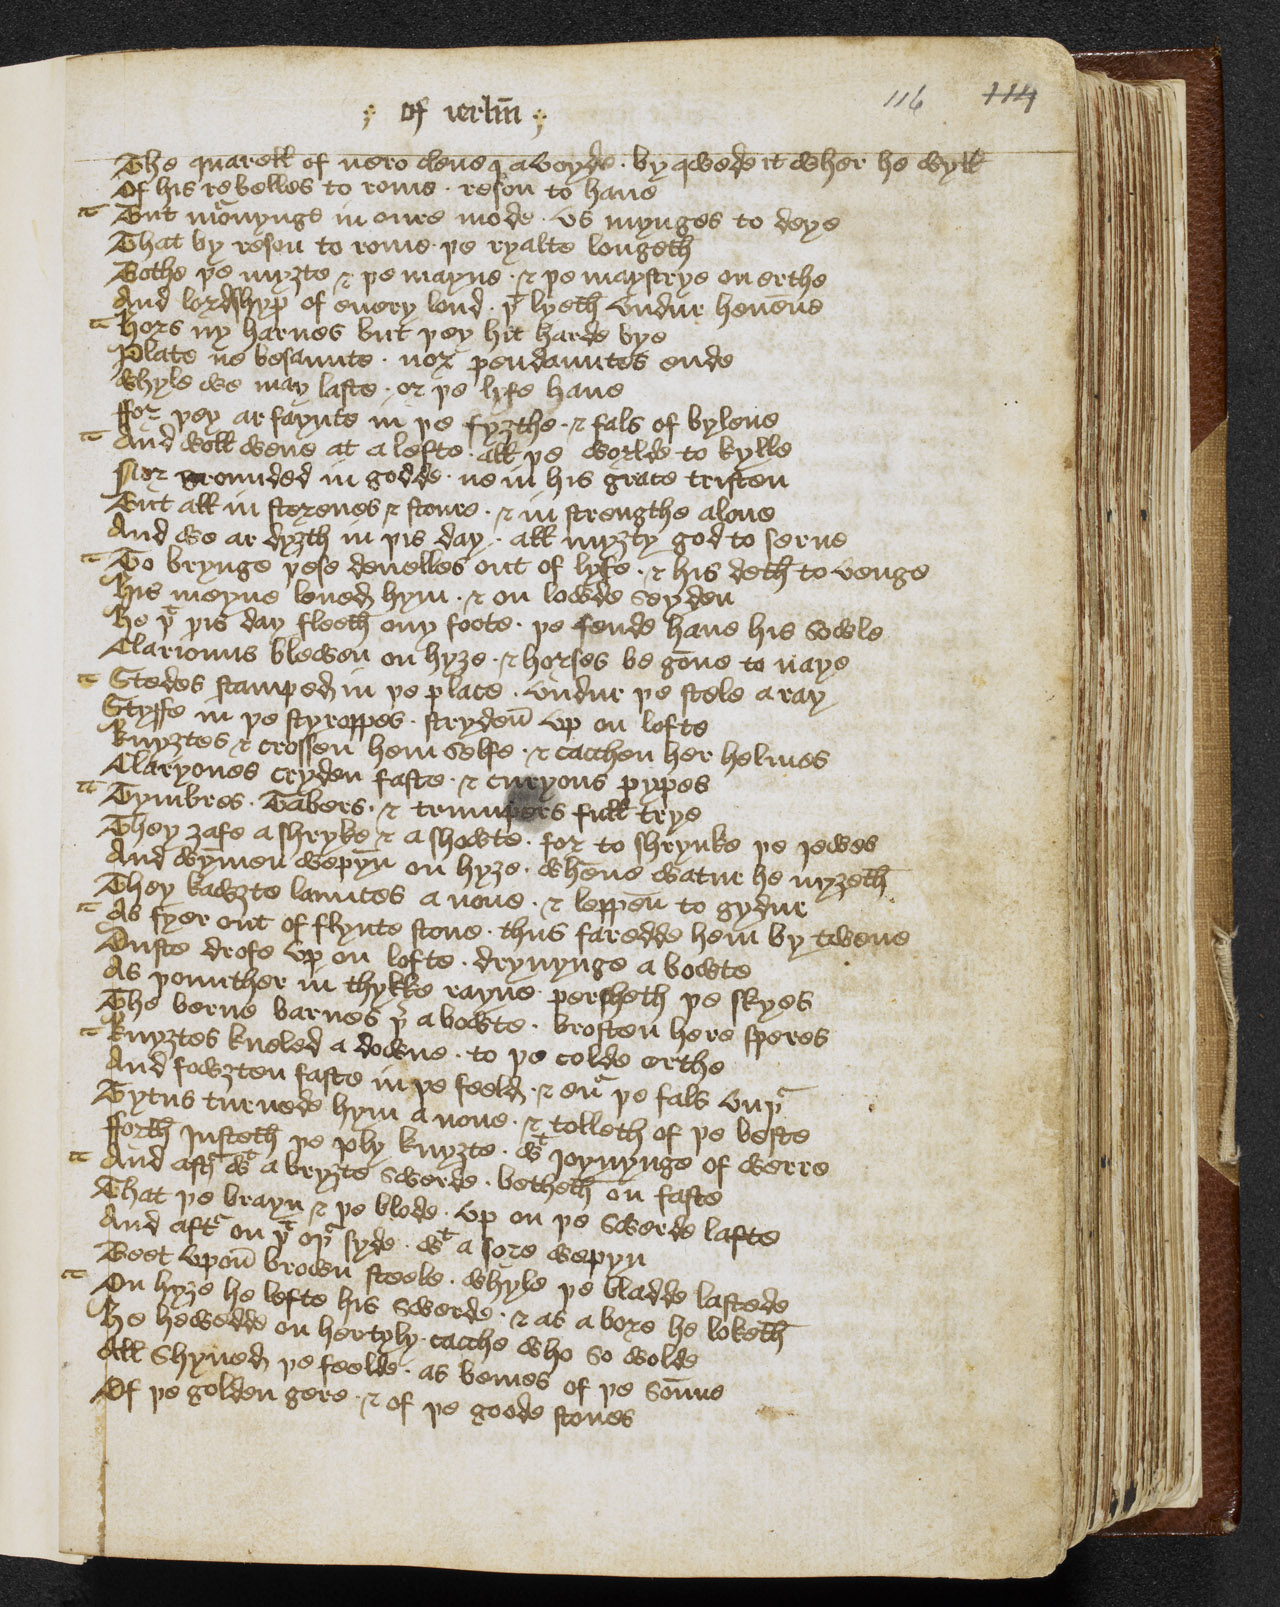 116 114
: of ierlm̄ :
The quarell of nero weneꝫ a voyde · by qwede it wher he wyll
Of his rebelles to rome · reson to haue
But mōnynge in oure mode · vs mynges to deye
That by reson to rome · þe ryalte longeth
Bothe þe myȝte & þe mayne · & þe maystrye on erthe
And lordshyp of euery lond · þᵗ lyeth vndur heuene
Hors ny harnes but þey hit harde bye
Plate ne besaunte · nor pendauntes ende
Whyle we may laste · or þe lyfe haue
ffor þey ar faynte in þe fyȝthe · & fals of byleue
And well wene at a lefte · all þe worlde to kylle
Nor grounded in godde · ne in his grace tristen
But all in sterenes & stoure · & in strengthe alone
And we ar dyȝth in þis day · all myȝty god to serue
To brynge þese deuelles out of lyfe · & his deth to venge
His meyne loued hym · & on lowde seyden
He þᵗ þis day fleeth ony foote · þe fende haue his sowle
Clarionus blewen on hyȝe · & horses be gōne to naye
Stedes stamped in þe place · vndur þe stele a ray
Styffe in þe styroppes · stryden̄ vp on lofte
Knyȝtes & crossen hem selfe · & cacchen her helmes
Claryones cryden faste · & curyous pypes
Tymbres · Tabers · & trumpers full trye
They ȝafe a shryke & a showte · for to shrynke þe iewes
And wymen wepyn̄ on hyȝe · whēne watur he nyȝeth
They kawȝte launces a none · & leppen̄ to gydur
As fyer out of flynte stone · thus faredde hem by twene
Duste drofe vp on lofte · dryuynge a bowte
As þounther in thykke rayne · persheth þe skyes
The berne barnes þʳ abowte · brosten here speres
Knyȝtes kneled a downe · to þe colde erthe
And fowȝten faste in þe feeld · & eu͛ þe fals vnþ͛
Tytus turnede hym a none · & tolleth of þe beste
fforth iusteth þe ioly knyȝte · wᵗ ioynynge of werre
And aft͛ wᵗ a bryȝte swerde · betheth on faste
That þe brayn & þe blode · vp on þe swerde lafte
And aft͛ on þᵗ oþ͛ syde · wᵗ a sore wepyn
Beet vpon̄ brown steele · whyle þe bladde lastede
On hyȝe he lefte his swerde · & as a bore he loketh
He hewedde on hertyly · cacche who so wolde
All shyned þe feelde · as bemes of þe sōnne
Of þe golden gere · & of þe goode stones